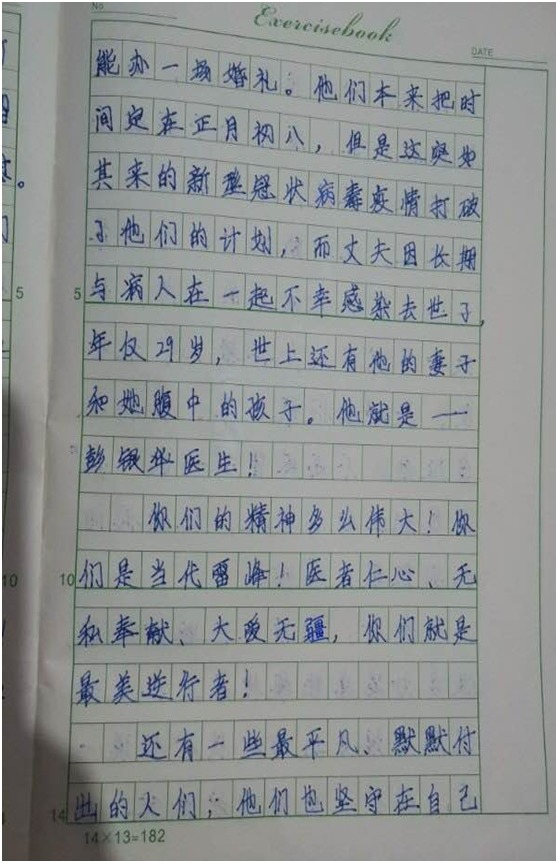 No
Exercisebook
DATE
能办一场婚礼。他们本来把时
间定在正月初八，但是这突如
其来的新型冠状病毒疫情打破
了他们的计划，而丈夫因长期
5 5 与病人在一起不幸感染去世了，
年仅29岁，世上还有他的妻子
和她腹中的孩子。他就是——
彭银华医生！
你们的精神多么伟大！你
10 10 们是当代雷峰！医者仁心、无
私奉献、大爱无疆，你们就是
最美逆行者！
还有一些最平凡、默默付
14 出的人们，他们也坚守在自己
14×13=182